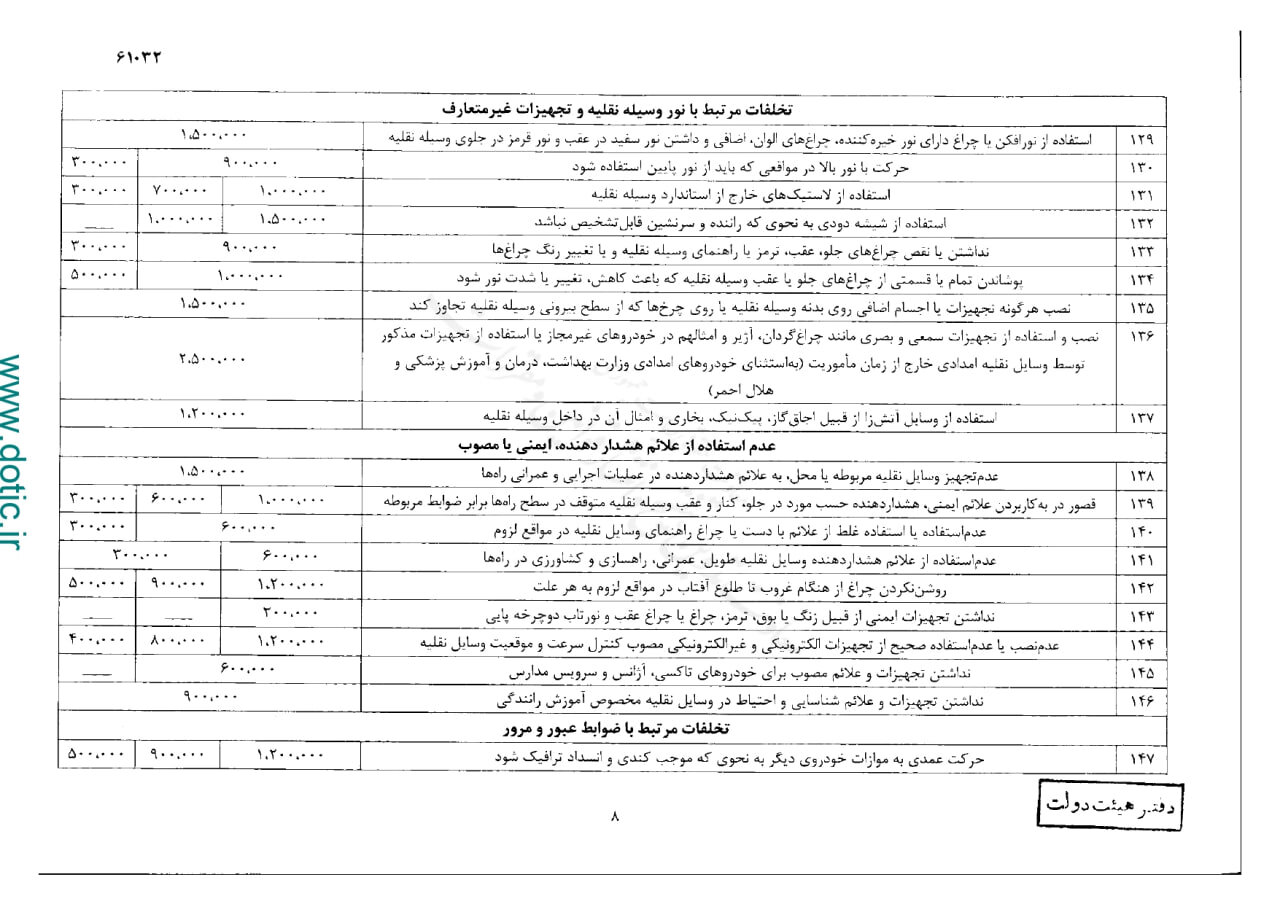 ۶۱۰۳۲
تخلفات مرتبط با نور وسیله نقلیه و تجهیزات غیرمتعارف
۱۲۹ استفاده از نورافکن یا چراغ دارای نور خیره‌کننده، چراغ‌های الوان، اضافی و داشتن نور سفید در عقب و نور قرمز در جلوی وسیله نقلیه ۱،۵۰۰،۰۰۰
۱۳۰ حرکت با نور بالا در مواقعی که باید از نور پایین استفاده شود ۹۰۰،۰۰۰ ۳۰۰،۰۰۰
۱۳۱ استفاده از لاستیک‌های خارج از استاندارد وسیله نقلیه ۱،۰۰۰،۰۰۰ ۷۰۰،۰۰۰ ۳۰۰،۰۰۰
۱۳۲ استفاده از شیشه دودی به نحوی که راننده و سرنشین قابل‌تشخیص نباشد ۱،۵۰۰،۰۰۰ ۱،۰۰۰،۰۰۰ ــــ
۱۳۳ نداشتن یا نقص چراغ‌های جلو، عقب، ترمز یا راهنمای وسیله نقلیه و یا تغییر رنگ چراغ‌ها ۹۰۰،۰۰۰ ۳۰۰،۰۰۰
۱۳۴ پوشاندن تمام یا قسمتی از چراغ‌های جلو یا عقب وسیله نقلیه که باعث کاهش، تغییر یا شدت نور شود ۱،۰۰۰،۰۰۰ ۵۰۰،۰۰۰
۱۳۵ نصب هرگونه تجهیزات یا اجسام اضافی روی بدنه وسیله نقلیه یا روی چرخ‌ها که از سطح بیرونی وسیله نقلیه تجاوز کند ۱،۵۰۰،۰۰۰
۱۳۶ نصب و استفاده از تجهیزات سمعی و بصری مانند چراغ‌گردان، آژیر و امثالهم در خودروهای غیرمجاز یا استفاده از تجهیزات مذکور
توسط وسایل نقلیه امدادی خارج از زمان مأموریت (به‌استثنای خودروهای امدادی وزارت بهداشت، درمان و آموزش پزشکی و ۲،۵۰۰،۰۰۰
هلال احمر)
۱۳۷ استفاده از وسایل آتش‌زا از قبیل اجاق‌گاز، پیک‌نیک، بخاری و امثال آن در داخل وسیله نقلیه ۱،۲۰۰،۰۰۰
عدم استفاده از علائم هشدار دهنده، ایمنی یا مصوب
۱۳۸ عدم‌تجهیز وسایل نقلیه مربوطه یا محل، به علائم هشداردهنده در عملیات اجرایی و عمرانی راه‌ها ۱،۵۰۰،۰۰۰
۱۳۹ قصور در به‌کاربردن علائم ایمنی، هشداردهنده حسب مورد در جلو، کنار و عقب وسیله نقلیه متوقف در سطح راه‌ها برابر ضوابط مربوطه ۱،۰۰۰،۰۰۰ ۶۰۰،۰۰۰ ۳۰۰،۰۰۰
۱۴۰ عدم‌استفاده یا استفاده غلط از علائم با دست یا چراغ راهنمای وسایل نقلیه در مواقع لزوم ۶۰۰،۰۰۰ ۳۰۰،۰۰۰
۱۴۱ عدم‌استفاده از علائم هشداردهنده وسایل نقلیه طویل، عمرانی، راهسازی و کشاورزی در راه‌ها ۶۰۰،۰۰۰ ۳۰۰،۰۰۰
۱۴۲ روشن‌نکردن چراغ از هنگام غروب تا طلوع آفتاب در مواقع لزوم به هر علت ۱،۲۰۰،۰۰۰ ۹۰۰،۰۰۰ ۵۰۰،۰۰۰
۱۴۳ نداشتن تجهیزات ایمنی از قبیل زنگ یا بوق، ترمز، چراغ یا چراغ عقب و نورتاب دوچرخه پایی ۲۰۰،۰۰۰ ــــ ــــ
۱۴۴ عدم‌نصب یا عدم‌استفاده صحیح از تجهیزات الکترونیکی و غیرالکترونیکی مصوب کنترل سرعت و موقعیت وسایل نقلیه ۱،۲۰۰،۰۰۰ ۸۰۰،۰۰۰ ۴۰۰،۰۰۰
۱۴۵ نداشتن تجهیزات و علائم مصوب برای خودروهای تاکسی، آژانس و سرویس مدارس ۶۰۰،۰۰۰ ــــ
۱۴۶ نداشتن تجهیزات و علائم شناسایی و احتیاط در وسایل نقلیه مخصوص آموزش رانندگی ۹۰۰،۰۰۰
تخلفات مرتبط با ضوابط عبور و مرور
۱۴۷ حرکت عمدی به موازات خودروی دیگر به نحوی که موجب کندی و انسداد ترافیک شود ۱،۲۰۰،۰۰۰ ۹۰۰،۰۰۰ ۵۰۰،۰۰۰
دفتر هیئت دولت
۸
www.dotic.ir